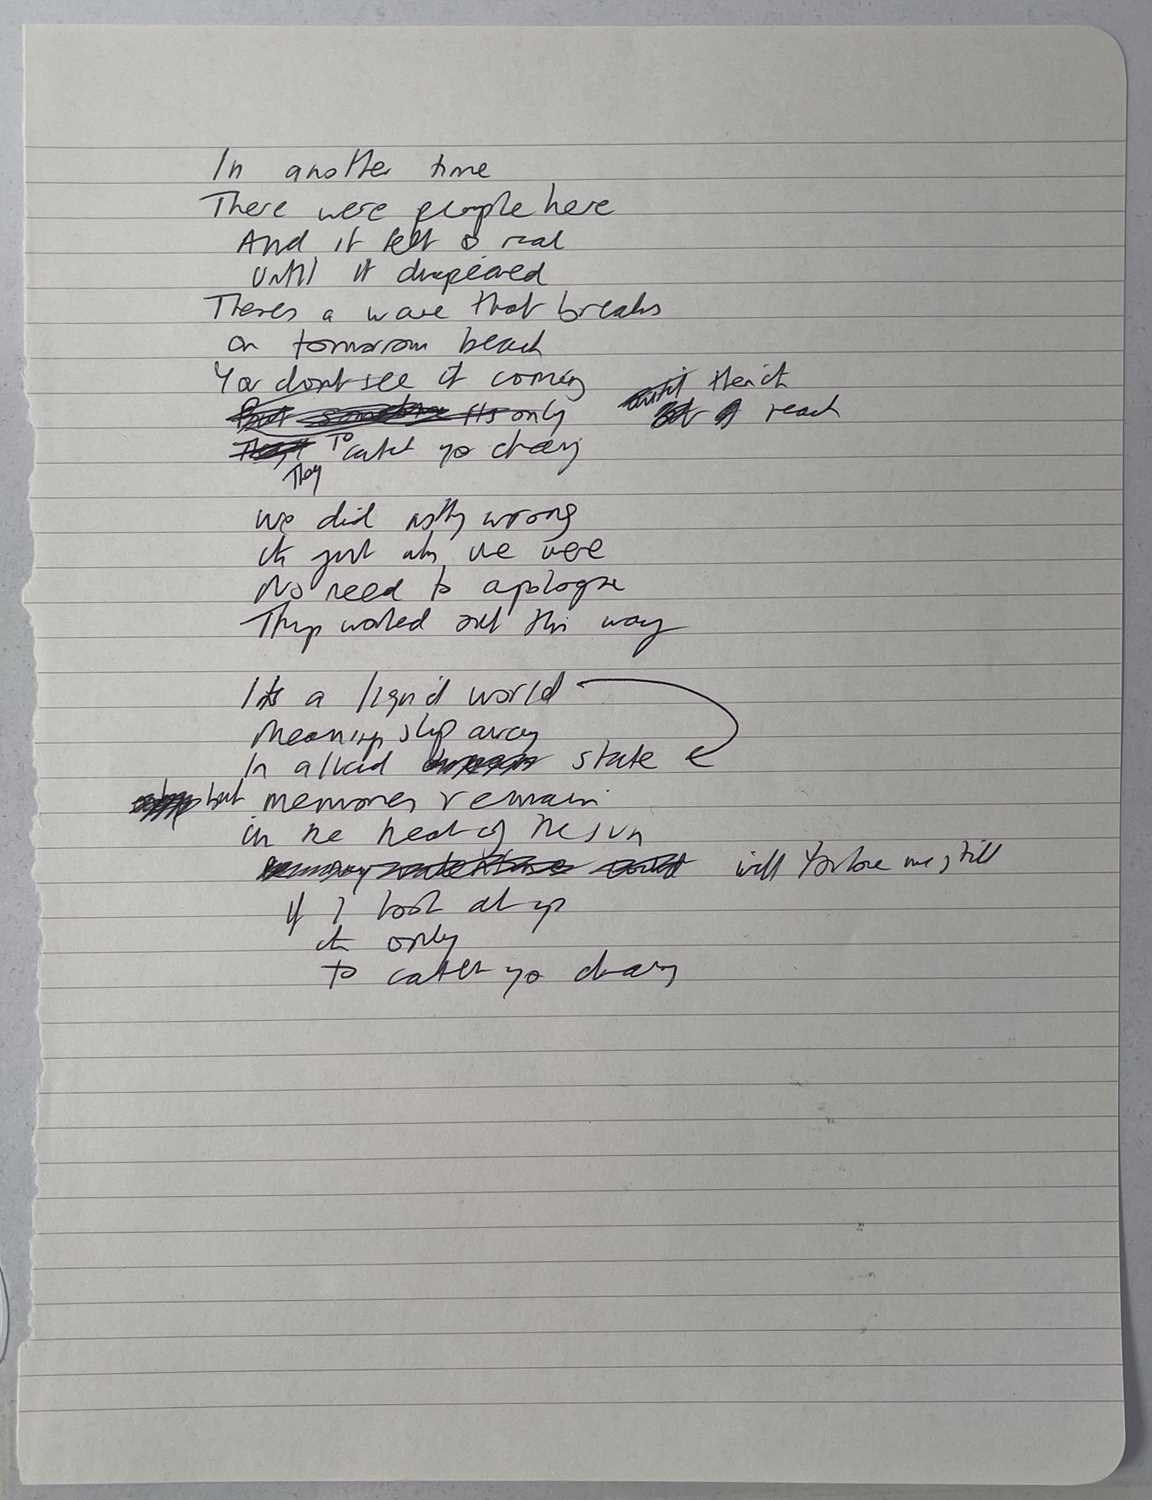 In another time
There were people here
And it felt so real
Until it disapeared
Theres a wave that breaks
On tomorrow beach
You dont see it coming until then it
But sometime Its only reach
To catch yo
They
We did nothing wrong
its just who we were
No need to apologise
Things worked out this way
Its a liquid world
Meanings slip away
In a liquid state
but memories remain
in the heat of the sun
will You love me still
If I look at yo
its only
to catch yo